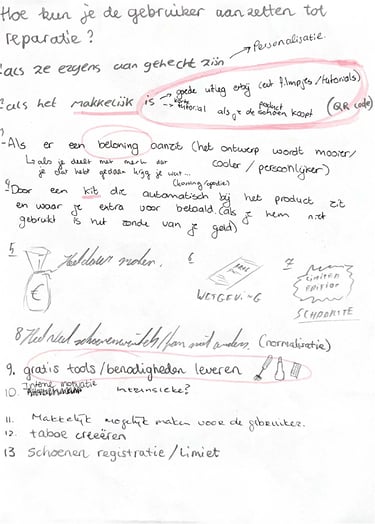 Hoe kun je de gebruiker aanzetten tot
reparatie?
Personalisatie.
als ze ergens aan gehecht zijn
goede uitleg erbij (evt filmpjes/tutorials)
als het makkelijk is
korte
tutorial als je de schoen koopt
product
(QR code)
- Als er een beloning aanzit (het ontwerp wordt mooier/
cooler / persoonlijker)
als je deelt met merk dat
je dat hebt gedaan krijg je wat...
(korting/garantie)
- Door een kit die automatisch bij het product zit
en waar je extra voor betaald (als je hem niet
gebruikt is het zonde van je geld)
5
€
Geld
6
WETGEVING
7
LIMITED
EDITION
SCHAARSTE
8 (normalisatie)
9. gratis tools/benodigheden leveren
10. Interne motivatie
intrensieke?
11. Makkelijk mogelijk maken voor de gebruiker.
12. taboe creëeren
13 Schoenen registratie / Limiet